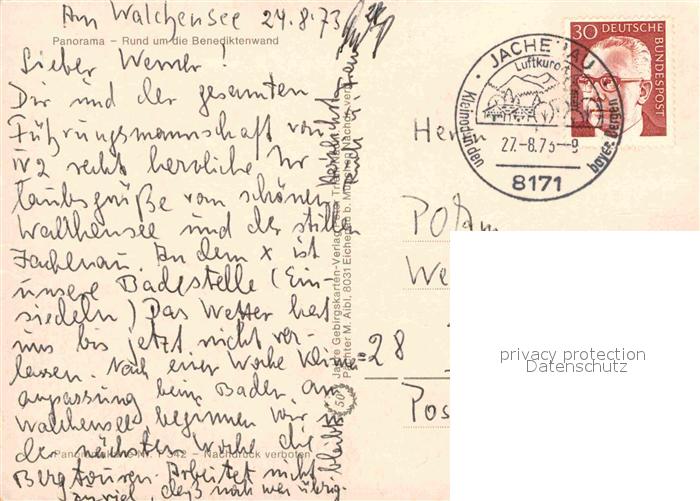 Am Walchensee 24.8.73
Panorama – Rund um die Benediktenwand
Lieber Werner!
Dir und der gesamten
Führungsmannschaft von
IV2 recht herzliche Ur
laubsgrüße vom schönen
Walchensee und der stillen
Jachenau. An dem x ist
unsere Badestelle (Ein-
siedeln) Das Wetter hat
uns bis jetzt nicht ver-
lassen. Nach einer Woche Klima
anpassung beim Baden am
Walchensee, beginnen wir in
der nächsten Woche die
Bergtouren. Arbeitet nicht
zu viel, daß noch was übrig-
bleibt
Herzlichst
Panoramakarte Nr. P 342 – Nachdruck verboten
50 Jahre Gebirgskarten-Verlag
Pächter M. Aibl, 8031 Eichenau b. München Nachdr. verboten
30 DEUTSCHE
BUNDESPOST
JACHENAU
Luftkurort
Kleinod in den bayer. Bergen
27.-8.73-9
8171
Herrn
28
privacy protection
Datenschutz